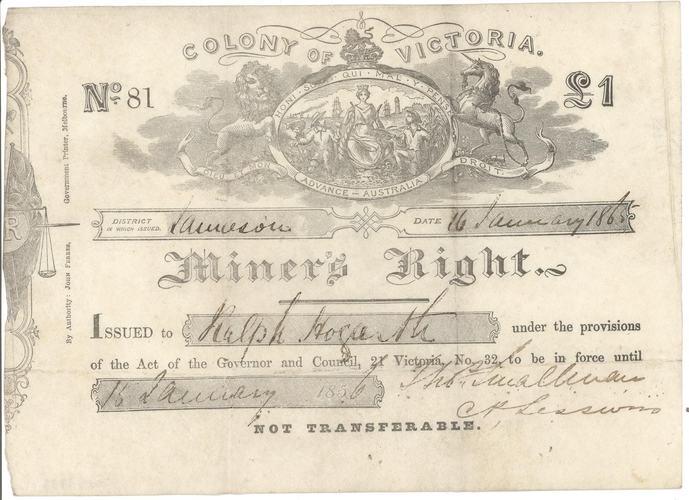 COLONY OF VICTORIA.
No. 81
£1
HONI · SOIT · QUI · MAL · Y · PENSE
DIEU ET MON DROIT.
ADVANCE – AUSTRALIA
DISTRICT IN WHICH ISSUED. Jamieson DATE 16 January 1865
Miner's Right.
ISSUED to Ralph Hogarth under the provisions
of the Act of the Governor and Council, 21 Victoria, No. 32, to be in force until
15 January 1866
NOT TRANSFERABLE.
By Authority: JOHN FERRES, Government Printer, Melbourne.